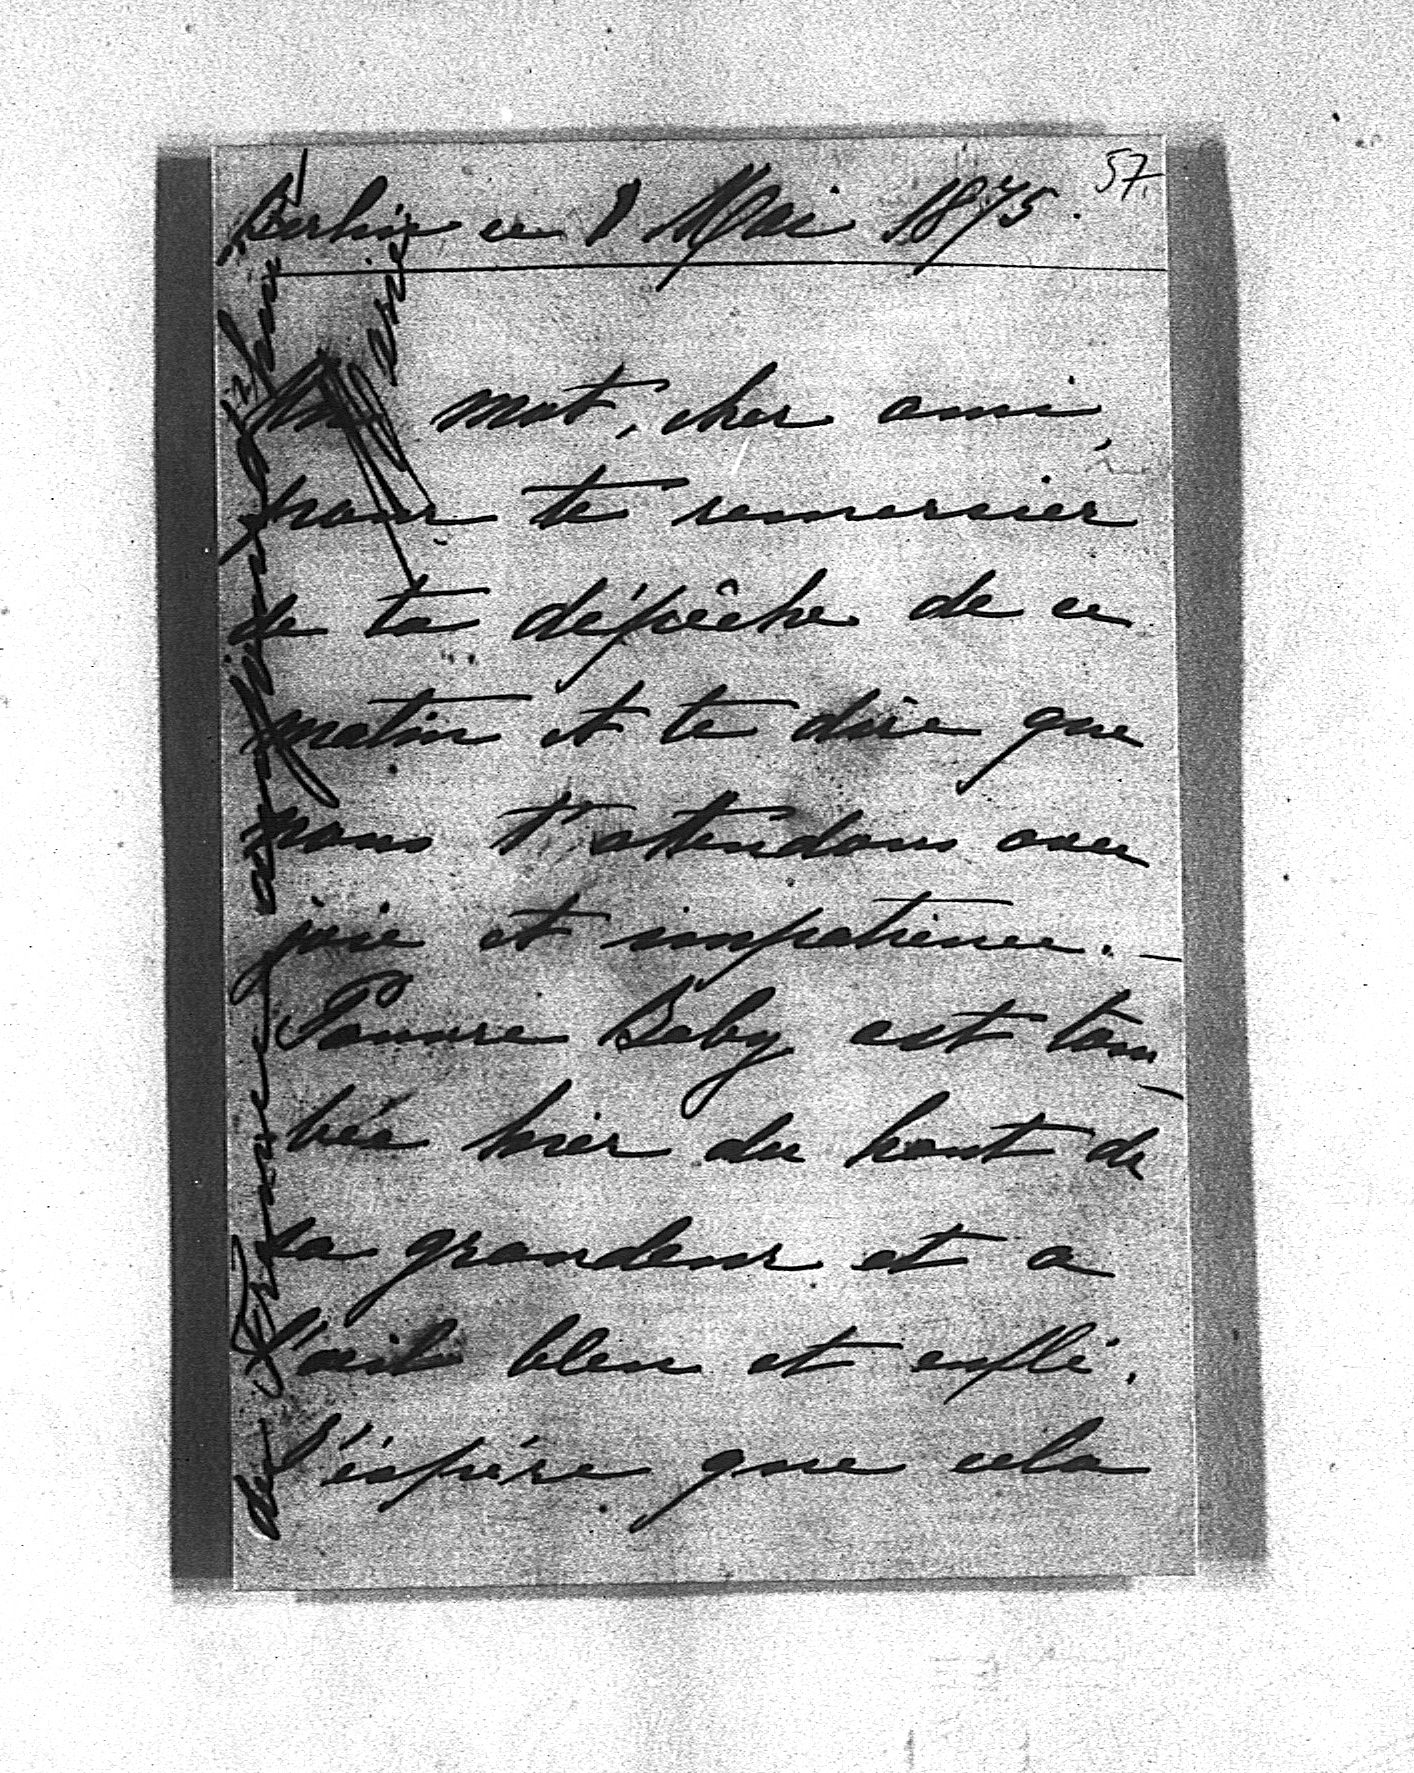 57.
Berlin ce 8 Mai 1875.
Un mot, cher ami,
pour te remercier
de ta dépêche de ce
matin et te dire que
nous t'attendons avec
joie et impatience. —
Pauvre Baby est tom-
bée hier du haut de
sa grandeur et a
l'œil bleu et enflé.
J'éspère que cela
de France
Marie